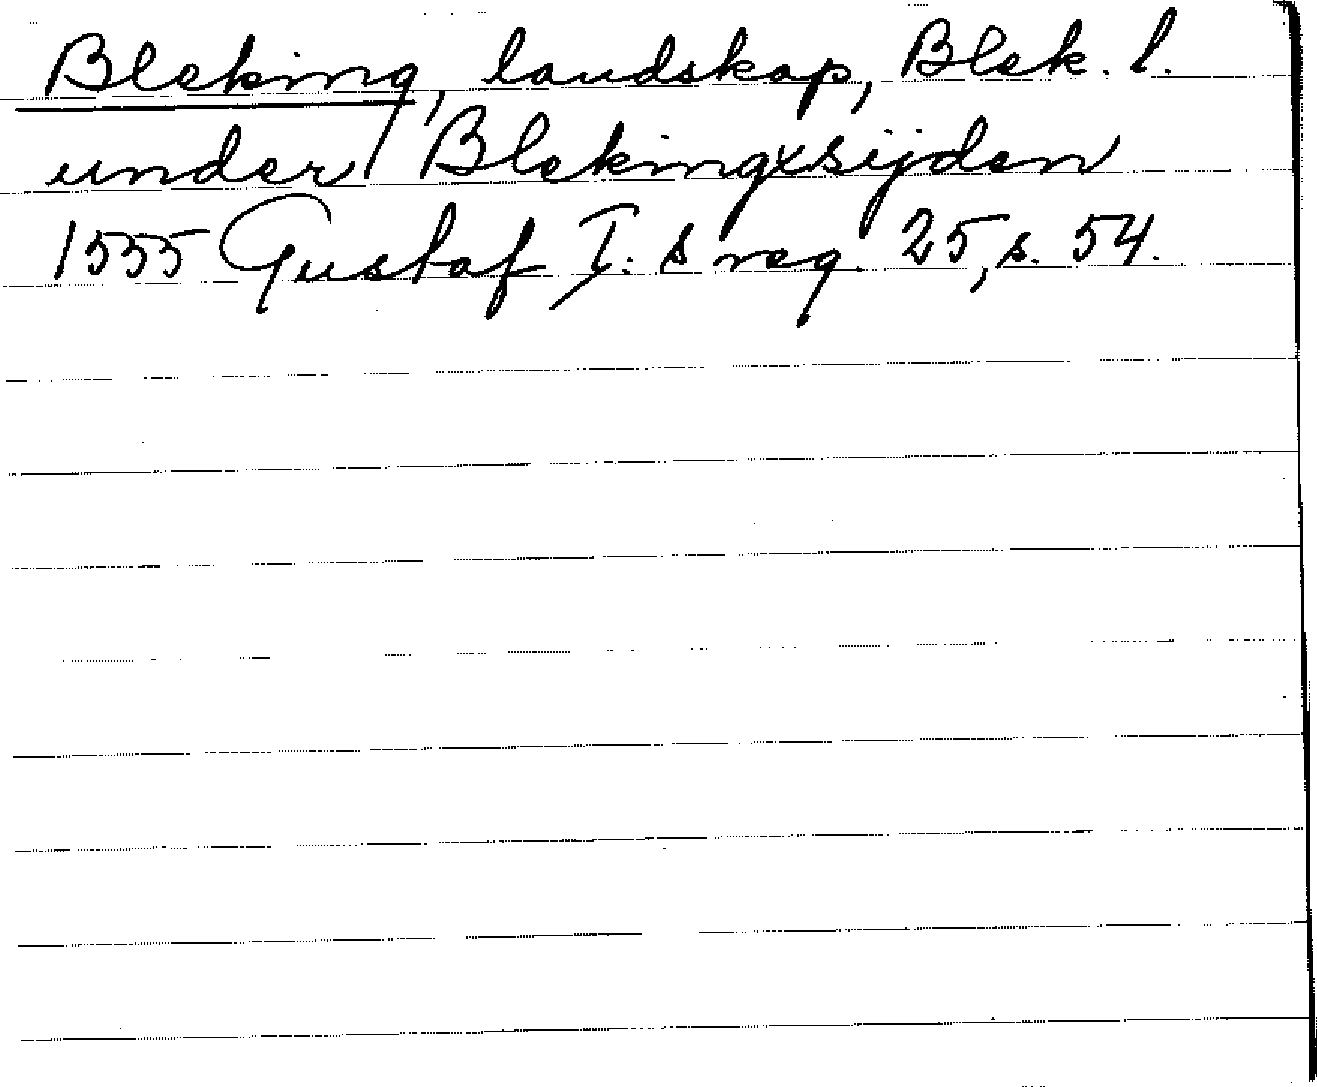 Bleking, landskap, Blek. l.
under Blekingxsijden
1555 Gustaf I:s reg. 25, s. 54.